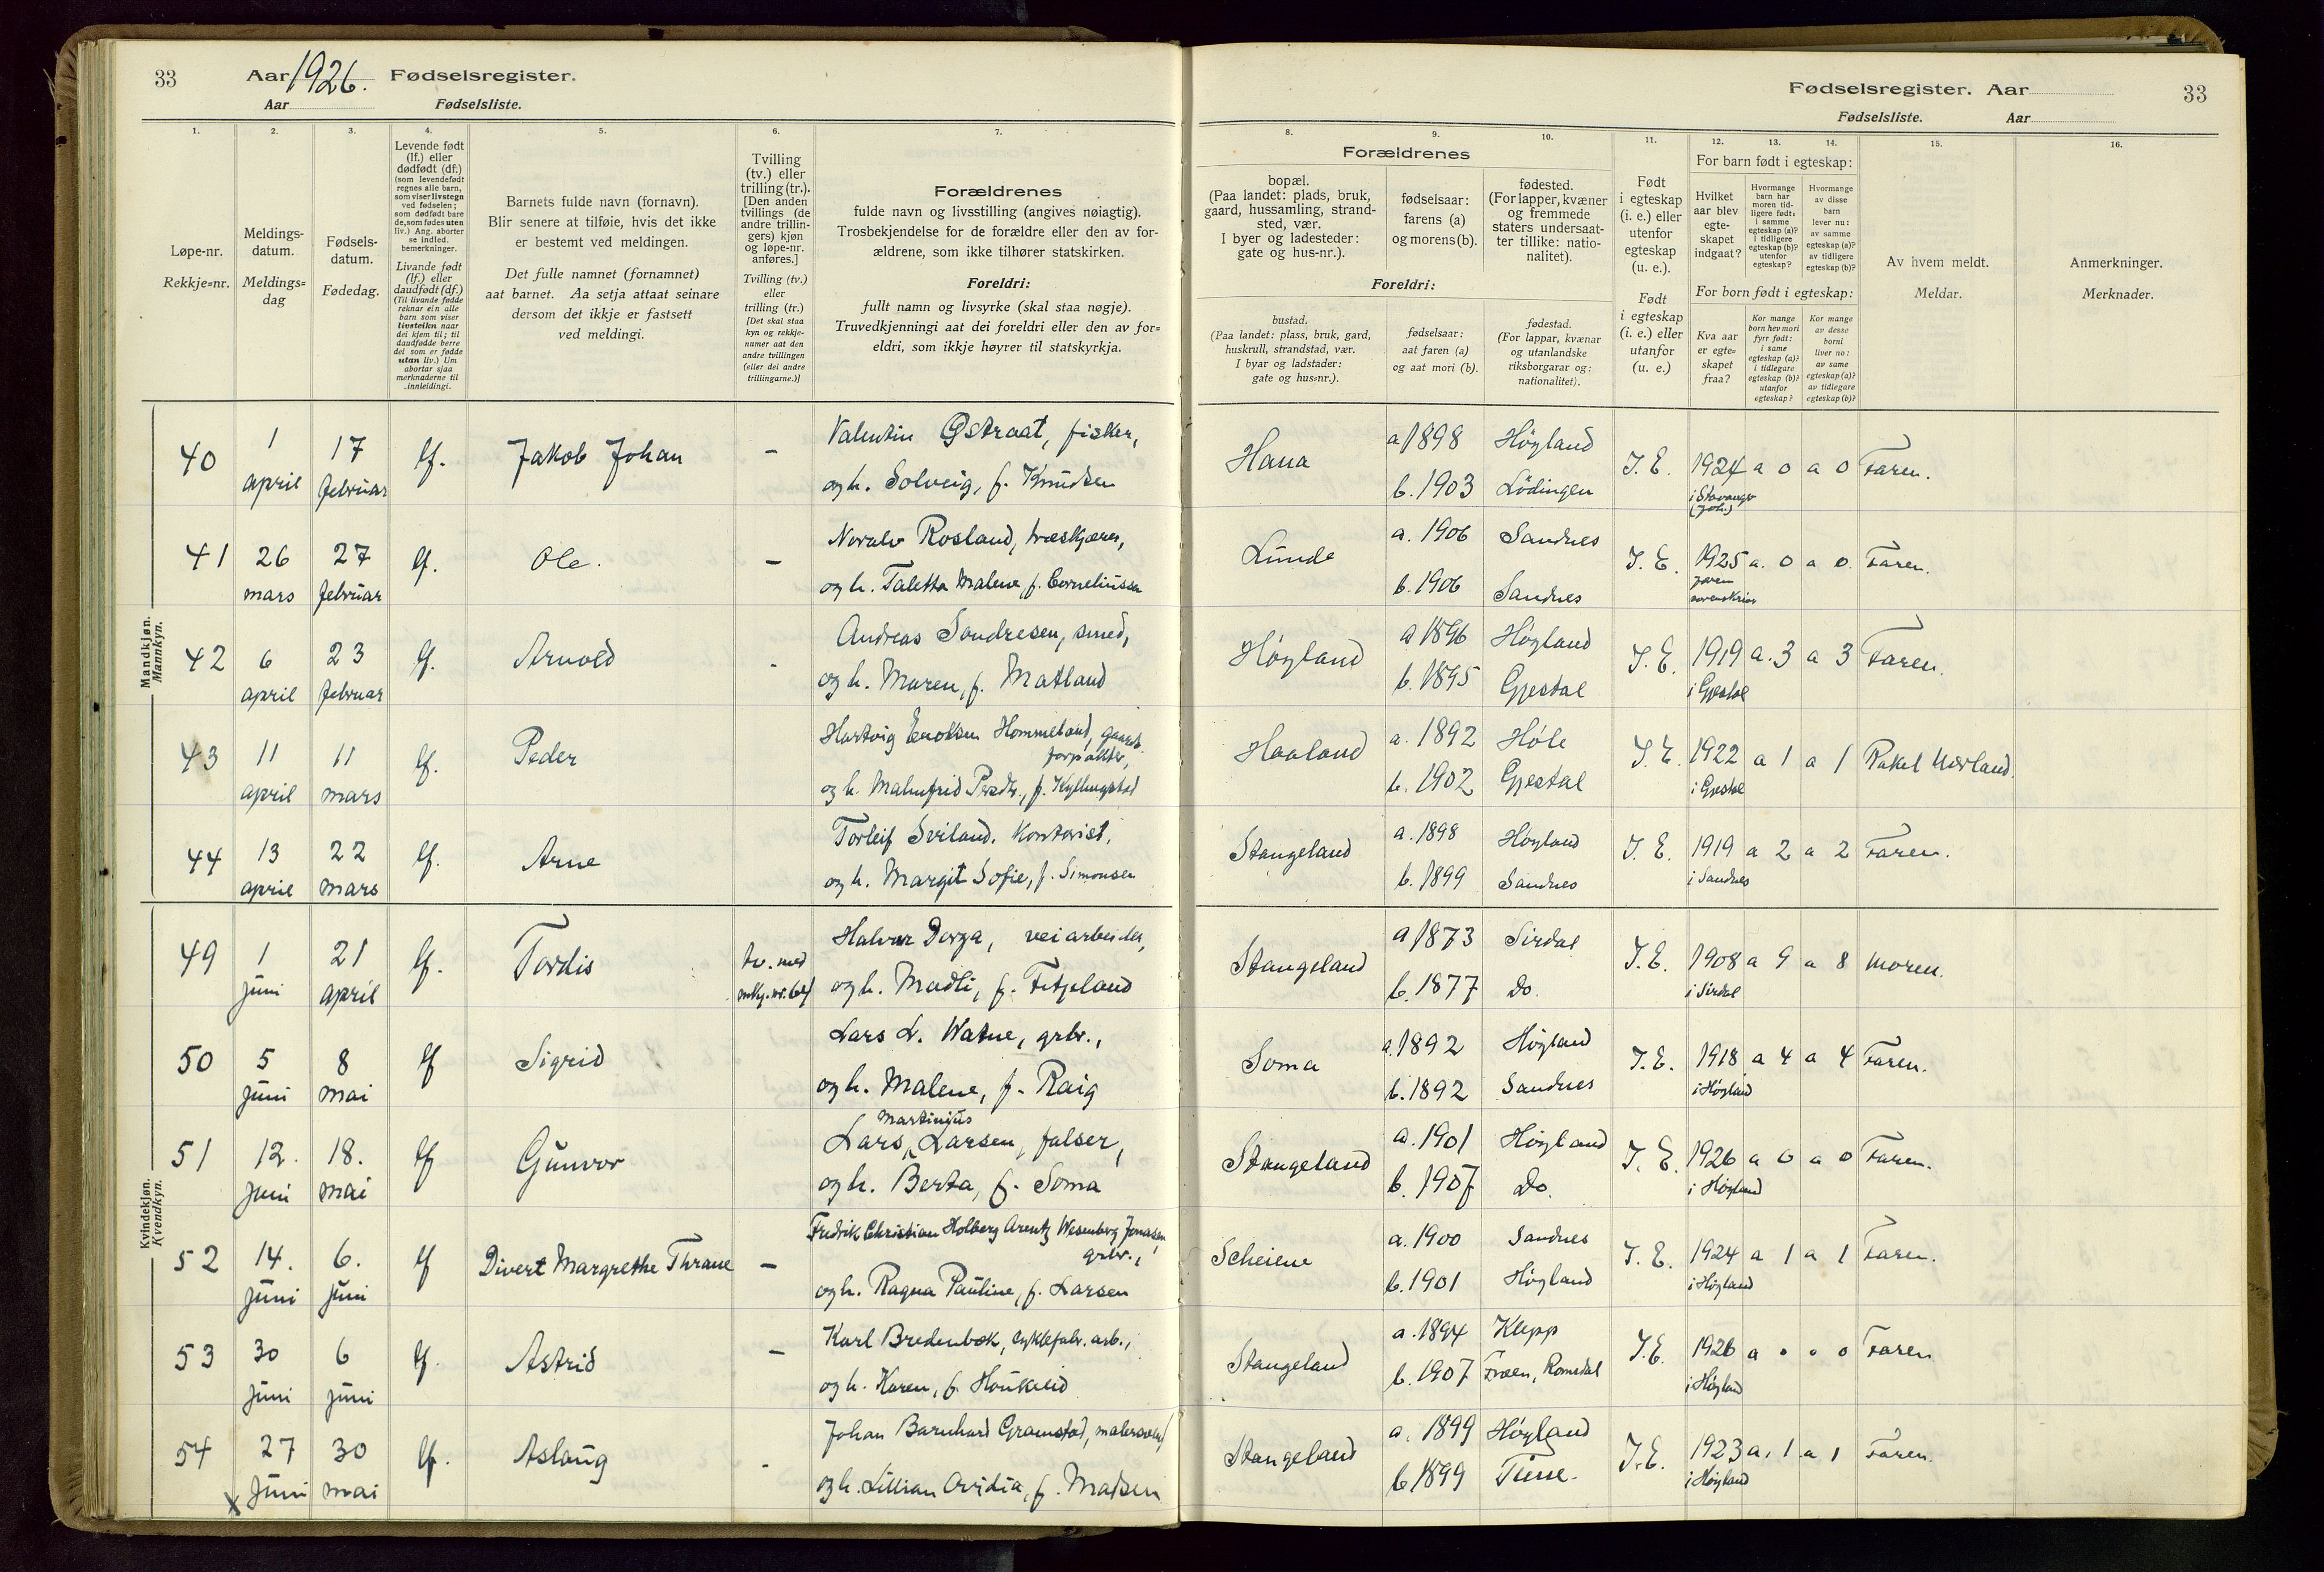 33 Aar 1926. Fødselsregister.
Aar Fødselsliste.
Fødselsregister. Aar 33
Fødselsliste. Aar
1. 2. 3. 4. 5. 6. 7.
8. 9. 10. 11. 12. 13. 14. 15. 16.
Løpe-nr.
Rekkje-nr.
Meldings-
datum.
Meldings-
dag
Fødsels-
datum.
Fødedag.
Levende født
(lf.) eller
dødfødt (df.)
(som levendefødt
regnes alle barn,
som viser livstegn
ved fødselen;
som dødfødt bare
de, som fødes uten
liv.) Ang. aborter
se indled.
bemerkninger.
Livande født
(lf.) eller
daudfødt (df.)
(Til livande fødde
reknar ein alle
barn som viser
livsteikn naar
dei kjem til; til
daudfødde berre
dei som er fødde
utan liv.) Um
abortar sjaa
merknaderne til
innleidingi.
Barnets fulde navn (fornavn).
Blir senere at tilføie, hvis det ikke
er bestemt ved meldingen.
Det fulle namnet (fornamnet)
aat barnet. Aa setja attaat seinare
dersom det ikkje er fastsett
ved meldingi.
Tvilling
(tv.) eller
trilling (tr.).
[Den anden
tvillings (de
andre trillin-
gers) kjøn
og løpe-nr.
anføres.]
Tvilling (tv.)
eller
trilling (tr.)
[Det skal staa
kyn og rekkje-
numer aat den
andre tvillingen
(eller dei andre
trillingarne.)]
Forældrenes
fulde navn og livsstilling (angives nøiagtig).
Trosbekjendelse for de forældre eller den av for-
ældrene, som ikke tilhører statskirken.
Foreldri:
fullt namn og livsyrke (skal staa nøgje).
Truvedkjenningi aat dei foreldri eller den av for-
eldri, som ikkje høyrer til statskyrkja.
Forældrenes
bopæl.
(Paa landet: plads, bruk,
gaard, hussamling, strand-
sted, vær.
I byer og ladesteder:
gate og hus-nr.).
fødselsaar:
farens (a)
og morens (b).
fødested.
(For lapper, kvæner
og fremmede
staters undersaat-
ter tillike: natio-
nalitet).
Foreldri:
bustad.
(Paa landet: plass, bruk, gard,
huskrull, strandstad, vær.
I byar og ladstader:
gate og hus-nr.).
fødselsaar:
aat faren (a)
og aat mori (b).
fødestad.
(For lappar, kvænar
og utanlandske
riksborgarar og:
nationalitet).
Født
i egteskap
(i. e.) eller
utenfor
egteskap
(u. e.).
Født
i egteskap
(i. e.) eller
utanfor
(u. e.)
For barn født i egteskap:
Hvilket
aar blev
egte-
skapet
indgaat?
Hvormange
barn har
moren tid-
ligere født:
i samme
egteskap (a)?
i tidligere
egteskap (b)?
utenfor
egteskap?
Hvormange
av disse
barn
lever nu:
av samme
egteskap (a)?
av tidligere
egteskap (b)?
For born født i egteskap:
Kva aar
er egte-
skapet
fraa?
Kor mange
born hev mori
fyrr født:
i same
egteskap (a)?
i tidlegare
egteskap (b)?
utanfor
egteskap?
Kor mange
av desse
borni
liver no:
av same
egteskap (a)?
av tidlegare
egteskap (b)?
Av hvem meldt.
Meldar.
Anmerkninger.
Merknader.
Mandkjøn.
Mannkyn.
40 1 april 17 februar lf. Jakob Johan - Valentin Østraat, fisker,
og h. Solveig, f. Knudsen
Hana a 1898 Höyland I. E. 1924 a 0 a 0 Faren.
b. 1903 Lödingen i Stavanger
41 26 mars 27 februar lf. Ole. - Rosland,
og h. Taletta Malene, f. Corneliussen
Lunde a. 1906 Sandnes I. E. 1925 a. 0 a 0. Faren.
b. 1906 Sandnes
42 6 april 23 februar lf. Arnold - Andreas Sondresen, smed,
og h. Maren, f. Matland
Höyland a 1896 Höyland I. E. 1919 a. 3 a 3 Faren.
b. 1895 Gjestal i Gjestal
43 11 april 11 mars lf. Peder Hartvig Hommeland, gaards-
forpakter,
og h. Malmfrid f. Kyllingstad
Haaland a. 1892 Höle I. E. 1922 a 1 a 1 Rakel
b. 1902 Gjestal i Gjestal
44 13 april 22 mars lf. Arne Torleif Sviland. Kontorist.
og h. Margit Sofie, f. Simonsen
Stangeland a. 1898 Höyland I. E. 1919 a 2 a 2 Faren.
b. 1899 Sandnes i Sandnes
Kvindekjøn.
Kvendkyn.
49 1 juni 21 april lf. Tordis tv. med Halvar veiarbeider,
og h. Madli, f. Fitjeland
Stangeland a 1873 Sirdal I. E. 1908 a 9 a 8 Moren.
b. 1877 Do. i Sirdal
50 5 juni 8 mai lf Sigrid Lars L. Watne, grbr.,
og h. Malene, f. Raig
Soma a. 1892 Höyland I. E. 1918 a 4 a 4 Faren.
b. 1892 Sandnes i Höyland
51 12. juni 18. mai lf Gunvor Lars Martinius Larsen, falser,
og h. Berta, f. Soma
Stangeland a. 1901 Höyland I. E. 1926 a 0 a 0 Faren.
b. 1907 Do. i Höyland
52 14. juni 6. juni lf Divert Margrethe Thrane - Fredrik Christian Holberg Arentz Wesenberg Jonasen
grbr.,
og h. Ragna Pauline, f. Larsen
Scheiene a. 1900 Sandnes I. E. 1924 a 1 a 1 Faren.
b. 1901 Höyland i Höyland
53 30 juni 6 juni lf. Astrid - Karl Bredenbek, cyklefabr. arb.,
og h. Karen, f.
Stangeland a. 1894 Klepp I. E. 1926 a 0 Faren
b. 1907 Romsdal i Höyland
54 27 juni 30 mai lf. Aslaug - Johan Barnhard Gramstad,
og h. Lillian Ovidia, f. Madsen
Stangeland a. 1899 Höyland I. E. 1923 a. 1 a 1 Faren.
b 1899 i Höyland